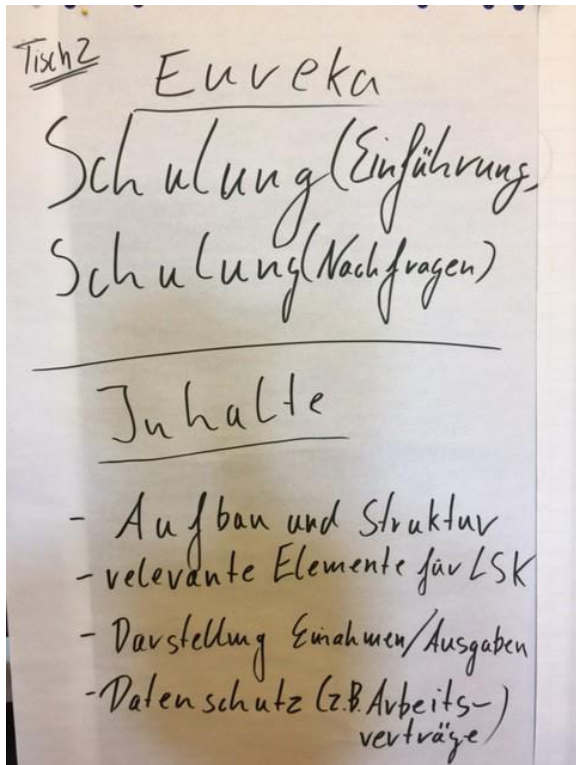 Tisch 2
Eureka
Schulung (Einführung)
Schulung (Nachfragen)
Inhalte
- Aufbau und Struktur
- relevante Elemente für LSK
- Darstellung Einahmen/Ausgaben
- Datenschutz (z.B. Arbeits-
verträge)